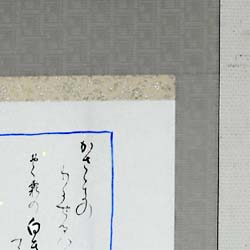 かさゝきの
わたせるハ
おく霜の白き